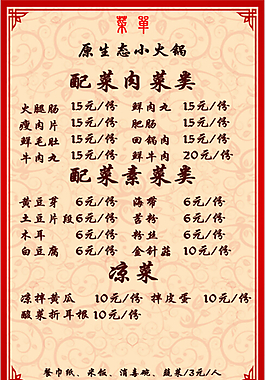 菜單
原生态小火锅
配菜肉菜类
火腿肠 15元/份 鲜肉丸 15元/份
瘦肉片 15元/份 肥肠 15元/份
鲜毛肚 15元/份 回锅肉 15元/份
牛肉丸 15元/份 鲜牛肉 20元/份
配菜素菜类
黄豆芽 6元/份 海带 6元/份
土豆片段 6元/份 苕粉 6元/份
木耳 6元/份 粉丝 6元/份
白豆腐 6元/份 金针菇 10元/份
凉菜
凉拌黄瓜 10元/份 拌皮蛋 10元/份
酸菜折耳根 10元/份
餐巾纸、米饭、消毒碗、蔬菜/3元/人